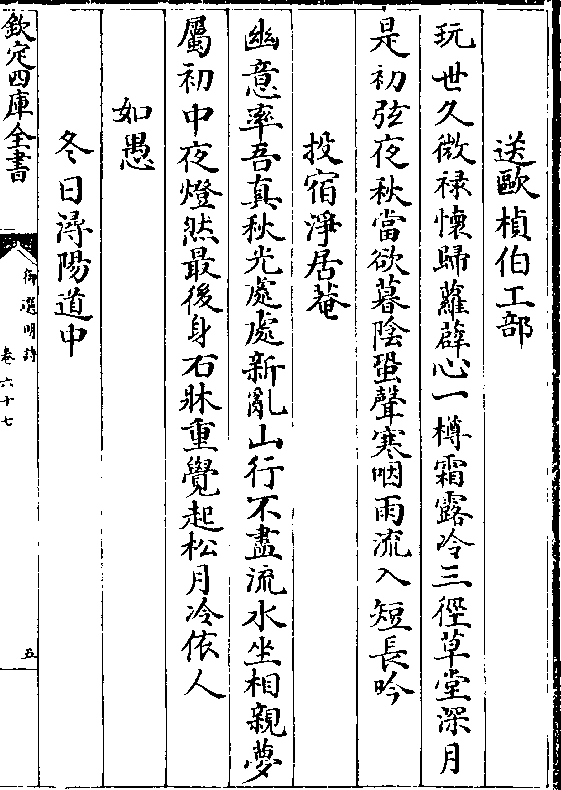 送歐楨伯工部
玩世久微禄懷歸蘿薜心一樽霜露冷三徑草堂深月
是初弦夜秋當欲暮陰蛩聲寒咽雨流入短長吟
投宿淨居菴
幽意率吾真秋光處處新亂山行不盡流水坐相親夢
屬初中夜燈然最後身石牀重覺起松月冷依人
如愚
冬日潯陽道中
欽定四庫全書
御選明詩
卷六十七
五